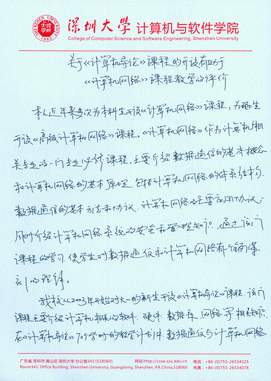 深圳大学 计算机与软件学院
College of Computer Science and Software Engineering, Shenzhen University
关于《计算机导论》课程的开设有助于
《计算机网络》课程教学的评价
本人近年来多次为本科生开设《计算机网络》课程，为研生
开设《高级计算机网络》课程。《计算机网络》作为计算机相
关专业的一门专业必修课程，主要介绍数据通信的基本概念
和计算机网络的基本原理，包括计算机网络的体系结构、
数据通信的基本方法和协议、计算机网络的主要应用协议，
同时介绍计算机网络系统的安全和管理知识。通过该门
课程的学习，使学生对数据通信和计算机网络有个全面深
刻的理解。
我校从2003年开始对大一的新生开设《计算机导论》课程，该门
课程主要介绍计算机相关的软件、硬件、数据库、网络等相关知识。
在《计算机导论》的学时的教学计划中，数据通信与计算机网络
广东省 深圳市 南山区 深圳大学 办公楼341 (518060)
Room341, Office Building, Shenzhen University, Guangdong, Shenzhen, PA.China, 518060
网站:http://csse.szu.edu.cn
电话:+86-(0)755-26534325
传真:+86-(0)755-26534078